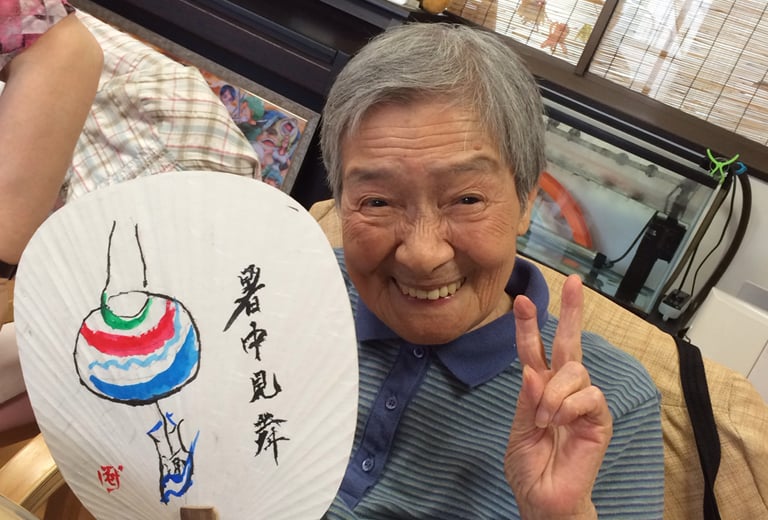 暑中見舞